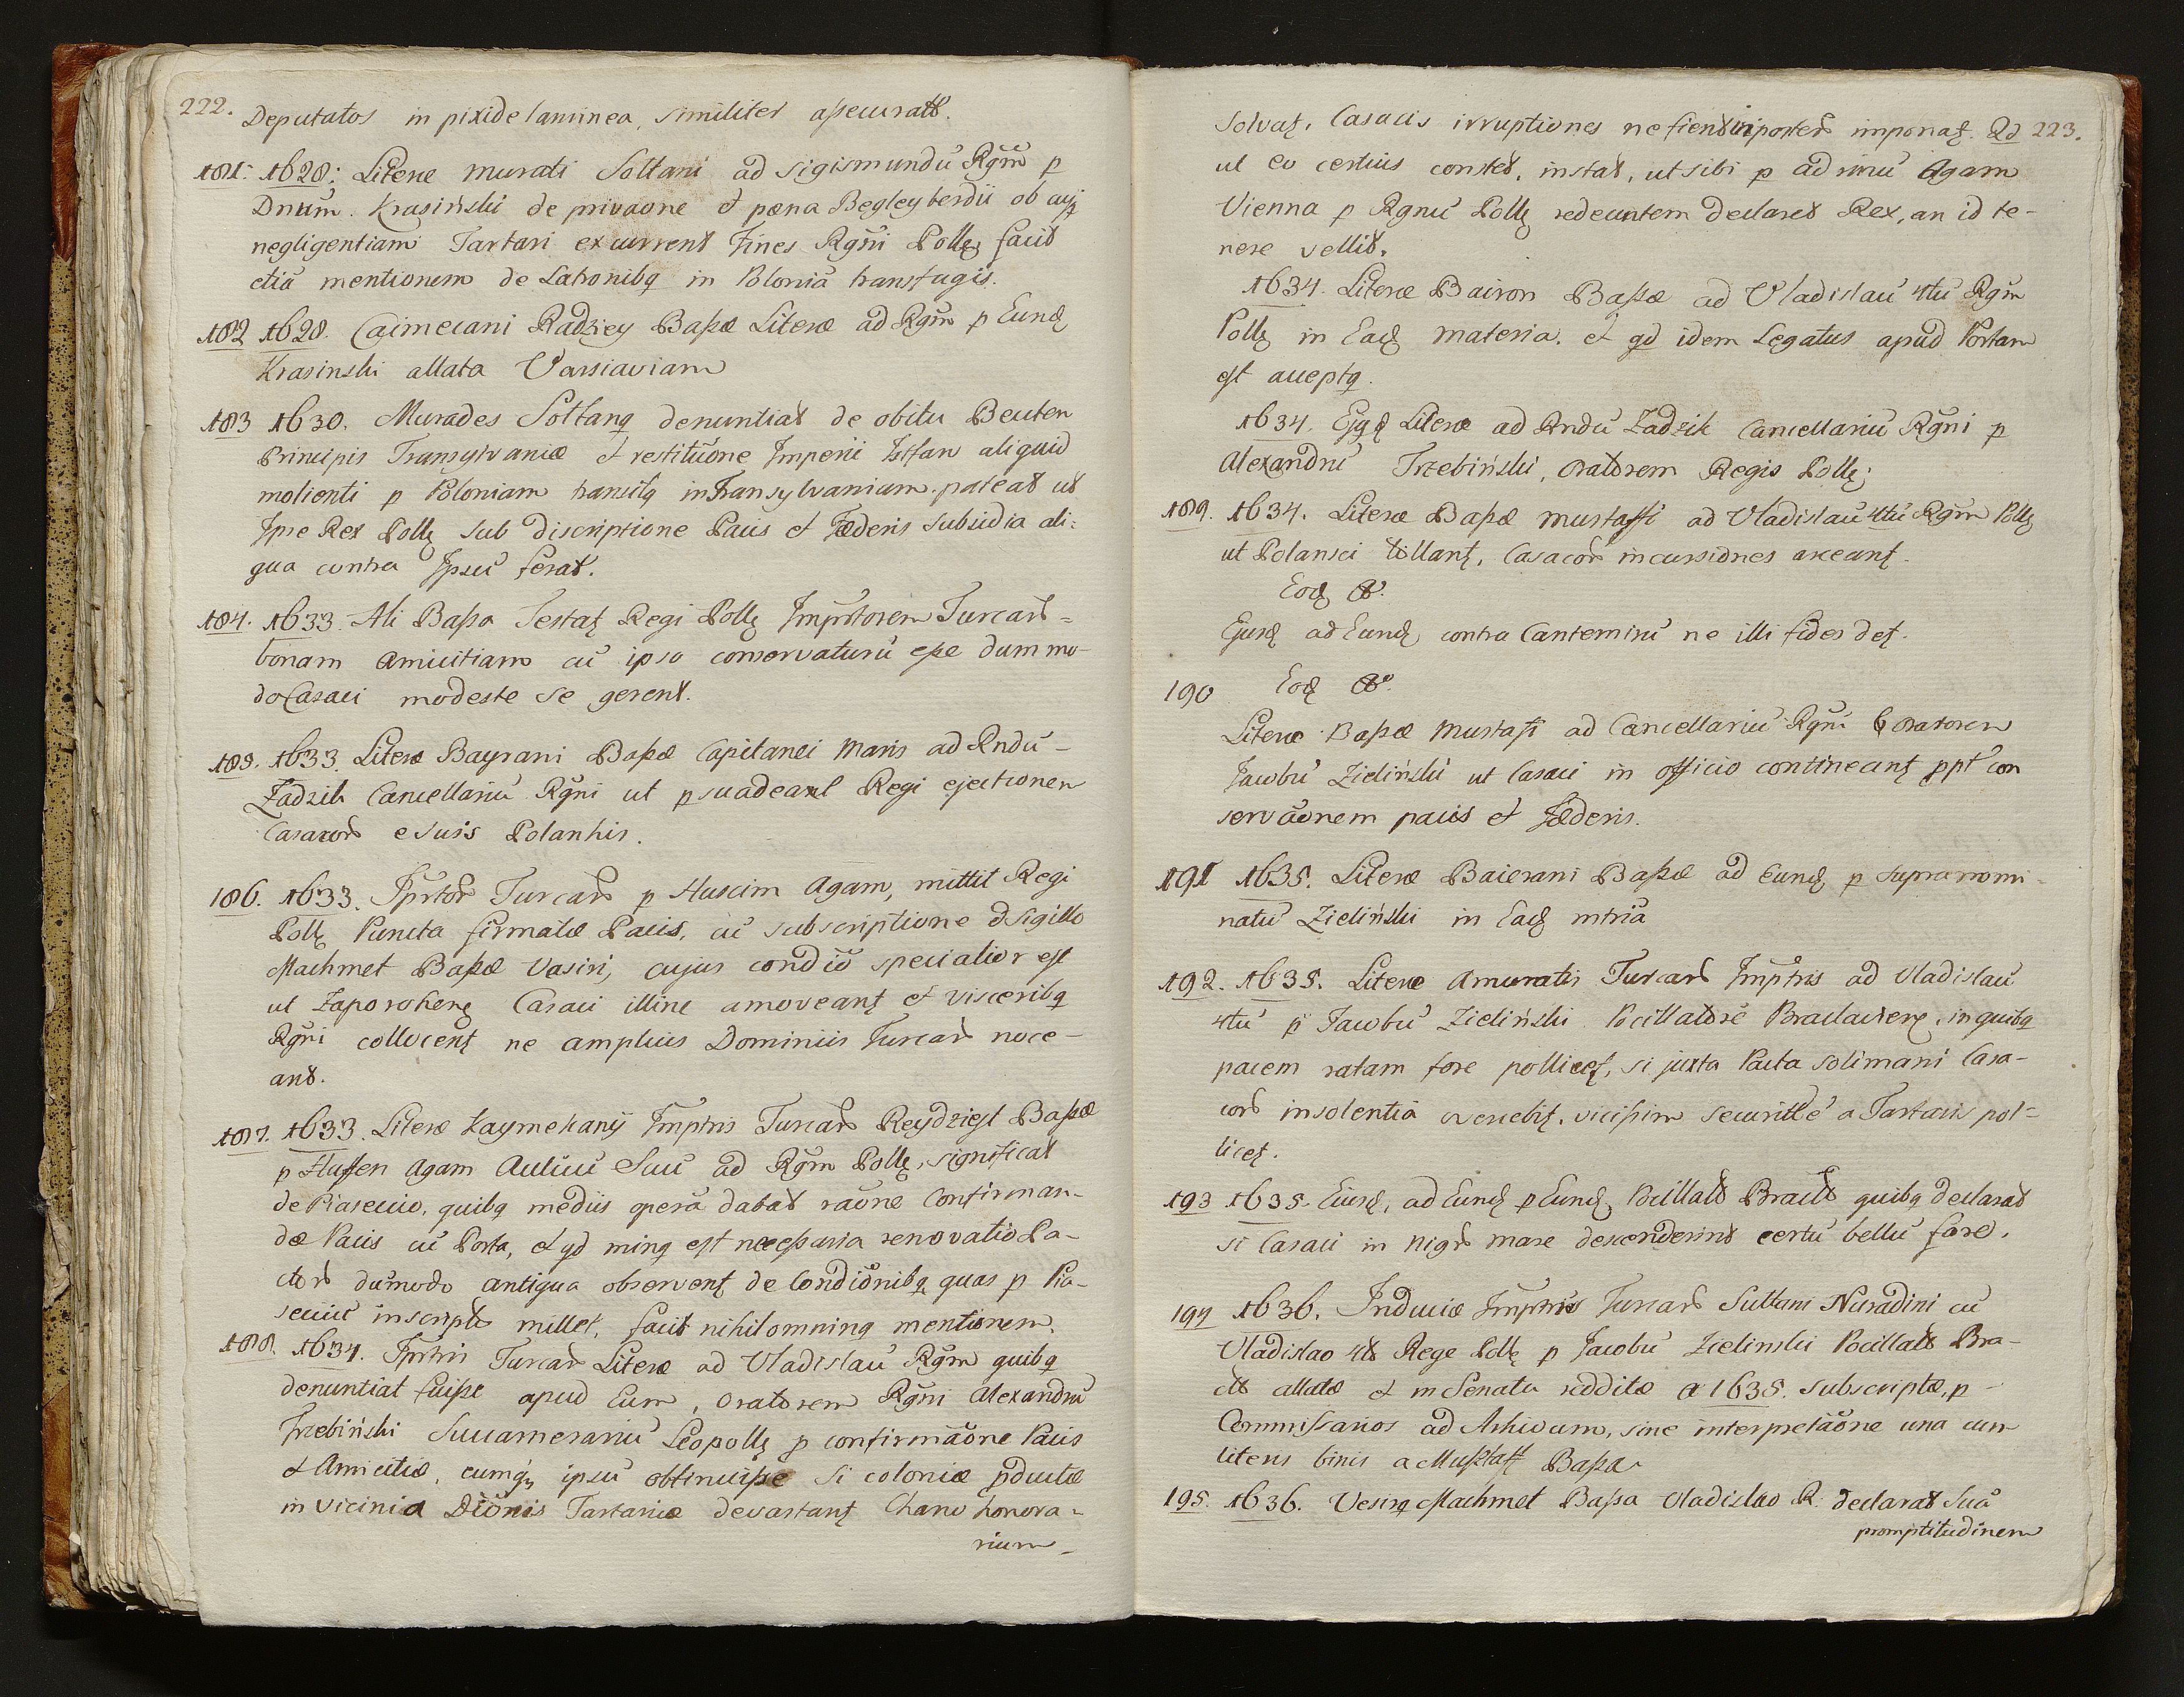 222.
Deputatos in pixide laminea, similiter assecurat.
181. 1628: Literæ Murati Soltani ad Sigismundũ Rgm̃ p
Dnum. Krasiński de privãone et pæna Begleyberdii ob cujq
negligentiam Tartari excurrent Fines Rgñi Pollę facit
etiã mentionem de Latronibq in Poloniã transfugis.
182 1628. Caimecani Radziey Bassæ Literæ ad Rgm̃ p Eundę
Krasinski allata Varsiaviam
183 1630. Murades Soltanq denuntiat de obitu Beuten
Principis Transylvaniæ et restitũone Imperii Istfan aliquid
molienti p Poloniam transitq in Transylvaniam pateat ut
Ipse Rex Pollę sub discriptione Pacis et Fæderis subsidia ali=
qua contra Ipsũ ferat.
184. 1633. Ali Bassa Testatę Regi Pollę Imprtorem Turcar =
bonam amicitiam cũ ipso conservaturũ esse dum mo-
do Casaci modeste se gerent.
185. 1633. Literæ Bayrani Bassæ Capitanei Maris ad Rndũ -
Zadzik Cancellariũ Rgñi ut psuadeant Regi ejectionem
Casacor e suis Polankis.
186. 1633. Iprtor Turcar p Huseim Agam, mittit Regi
Pollę Puncta firmatæ Pacis, cũ subscriptione et Sigillo
Machmet Bassæ Vasiri, cujus condiõ specialior est
ut Zaporohenę Casaci illinc amoveantę et visceribq
Rgñi collocentę ne amplius Dominiis Turcar noce-
ant.
187. 1633. Literæ Kaymekanij Imptris Turcar Reydziest Bassæ
p Hussen Agam Aulicũ Suũ ad Rgm̃ Pollę, significat
de Piasecio, quibq mediis operã dabat rãone Confirman-
dæ Pacis cũ Porta, et qd minq est necessaria renovatio Pa-
ctor dum̃odo antiqua observentę de Condiõnibq quas p Pia-
seciũ inscript mittet, facit nihilominq mentionem.
188. 1634. Iprtris Turcar Literæ ad Vladislaũ Rgm̃ quibq
denuntiat fuisse apud Eum, Oratorem Rgñi Alexandrũ
Trzebiński Succamerariũ Leopollę p confirmãone Pacis
et Amicitiæ, cumq; ipsũ obtinuisse si coloniæ pductæ
in vicinia Diõnis Tartariæ devastantę Chano honora-
rium -
223.
Solvatę, Casacis irruptiones ne fient in posterũ imponatę. Qd
ut eo certius constet, instat, ut sibi p ad unũ Agam
Vienna p Rgnũ Pollę redeuntem declaret Rex, an id te-
nere vellit.
1634. Literæ Bairon Bassæ ad Vladislaũ 4tũ Rgm̃
Pollę in Eadę materia. et qd idem Legatus apud Portam
est acceptq.
1634. Ejqdę Literæ ad Rndũ Zadzik Cancellariũ Rgñi p
Alexandrũ Trzebiński, Oratorem Regis Pollę;
189. 1634. Literæ Bassæ Mustaffi ad Vladislaũ 4tũ Rgm̃ Pollę
ut Polansci tollantę, Casacor incursiones arceantę.
Eodę Aº.
Ejusdę ad Eundę contra Cantemirũ ne illi fides detę.
190 Eodę Aº.
Literæ Bassæ Mustaffi ad Cancellariũ Rgñi p Oratorem
Jacobũ Zieliński ut Casaci in officio contineantę ppt con
servãonem pacis et fæderis.
191 1635. Literæ Baierani Bassæ ad Eundę p supranomi-
natũ Zieliński in Eadę mtriã
192. 1635. Literæ Amuratis Turcar Imptris ad Vladislaũ
4tũ p Jacobũ Zieliński Pocillatorẽ Braclaviens, in quibq
pacem ratam fore pollicetę, si juxta Pacta Solimani Casa-
cor insolentia coercebitę, vicissim securittẽ a Tartaris pol=
licetę.
193 1635. Eiusdę, ad Eundę p Eundę, Pocillat Braclt quibq declarat
si Casaci in Nigr mare descenderint certũ bellũ fore.
194 1636. Induciæ Imptris Turcar Sultani Nuradini cũ
Vladislao 4to Rege Pollę p Jacobũ Zielinski Pocillat Bra-
clt allatæ et in Senatu redditæ A 1635. subscriptæ, p -
Commissarios ad Arhivum, sine interpretãone una cum
literis binis a Mustaff Bassa
195. 1636. Vesirq Machmet Bassa Vladislao R. declarat suã
promptitudinem